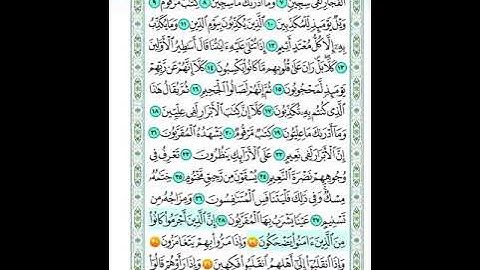 ٱلْفُجَّارِ لَفِى سِجِّينٍ ٧ وَمَآ أَدْرَىٰكَ مَا سِجِّينٌ ٨ كِتَٰبٌ مَّرْقُومٌ ٩
وَيْلٌ يَوْمَئِذٍ لِّلْمُكَذِّبِينَ ١٠ ٱلَّذِينَ يُكَذِّبُونَ بِيَوْمِ ٱلدِّينِ ١١ وَمَا يُكَذِّبُ
بِهِۦٓ إِلَّا كُلُّ مُعْتَدٍ أَثِيمٍ ١٢ إِذَا تُتْلَىٰ عَلَيْهِ ءَايَٰتُنَا قَالَ أَسَٰطِيرُ ٱلْأَوَّلِينَ
١٣ كَلَّا ۖ بَلْ ۜ رَانَ عَلَىٰ قُلُوبِهِم مَّا كَانُوا۟ يَكْسِبُونَ ١٤ كَلَّآ إِنَّهُمْ عَن رَّبِّهِمْ
يَوْمَئِذٍ لَّمَحْجُوبُونَ ١٥ ثُمَّ إِنَّهُمْ لَصَالُوا۟ ٱلْجَحِيمِ ١٦ ثُمَّ يُقَالُ هَٰذَا
ٱلَّذِى كُنتُم بِهِۦ تُكَذِّبُونَ ١٧ كَلَّآ إِنَّ كِتَٰبَ ٱلْأَبْرَارِ لَفِى عِلِّيِّينَ ١٨
وَمَآ أَدْرَىٰكَ مَا عِلِّيُّونَ ١٩ كِتَٰبٌ مَّرْقُومٌ ٢٠ يَشْهَدُهُ ٱلْمُقَرَّبُونَ ٢١
إِنَّ ٱلْأَبْرَارَ لَفِى نَعِيمٍ ٢٢ عَلَى ٱلْأَرَآئِكِ يَنظُرُونَ ٢٣ تَعْرِفُ فِى
وُجُوهِهِمْ نَضْرَةَ ٱلنَّعِيمِ ٢٤ يُسْقَوْنَ مِن رَّحِيقٍ مَّخْتُومٍ ٢٥ خِتَٰمُهُۥ
مِسْكٌ ۚ وَفِى ذَٰلِكَ فَلْيَتَنَافَسِ ٱلْمُتَنَٰفِسُونَ ٢٦ وَمِزَاجُهُۥ مِن
تَسْنِيمٍ ٢٧ عَيْنًا يَشْرَبُ بِهَا ٱلْمُقَرَّبُونَ ٢٨ إِنَّ ٱلَّذِينَ أَجْرَمُوا۟ كَانُوا۟
مِنَ ٱلَّذِينَ ءَامَنُوا۟ يَضْحَكُونَ ٢٩ وَإِذَا مَرُّوا۟ بِهِمْ يَتَغَامَزُونَ ٣٠
وَإِذَا ٱنقَلَبُوٓا۟ إِلَىٰٓ أَهْلِهِمُ ٱنقَلَبُوا۟ فَكِهِينَ ٣١ وَإِذَا رَأَوْهُمْ قَالُوٓا۟